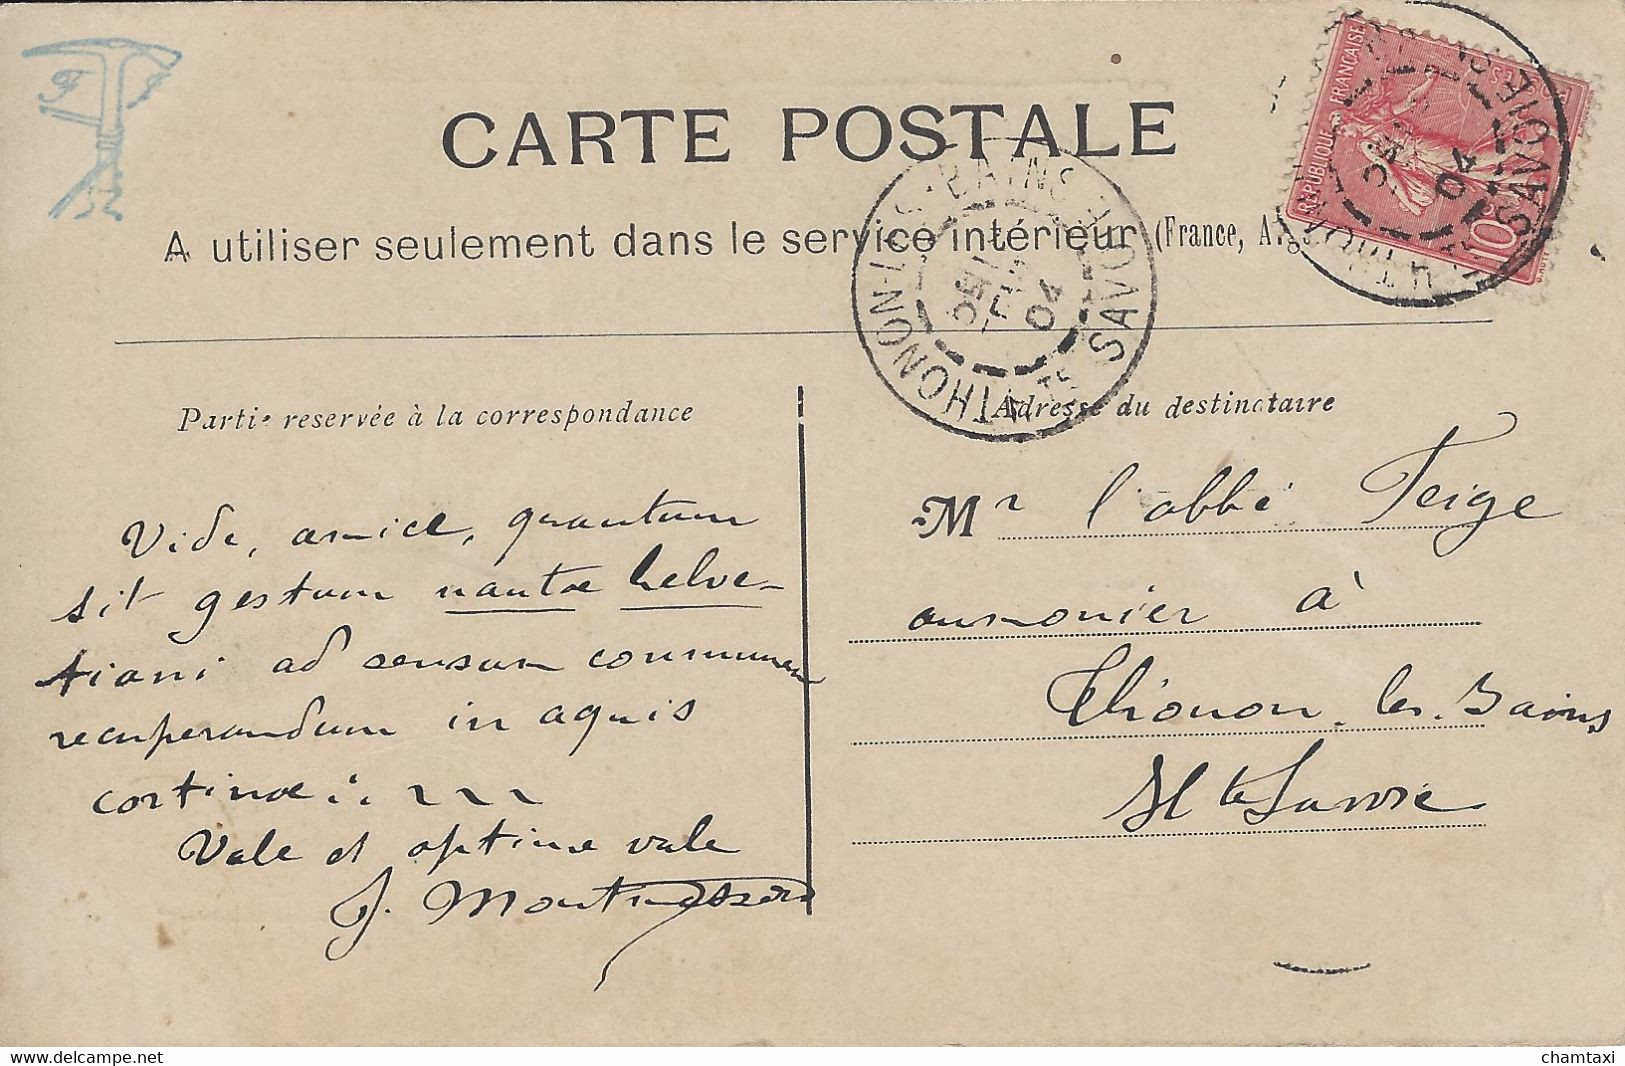 CARTE POSTALE
A utiliser seulement dans le service intérieur (France, Alg
RÉPUBLIQUE FRANÇAISE
10
THONON-LES-BAINS
SAVOIE
04
04
SAVOIE
Partie reservée à la correspondance
Adresse du destinataire
Vide, amice, quantum
sit gestum nautæ helve-
tiani ad sensum communem
recuperandum in aquis
Vale et optime vale
Mr l'abbé Feige
aumonier à
Thonon-les-Bains
Hte Savoie
chamtaxi